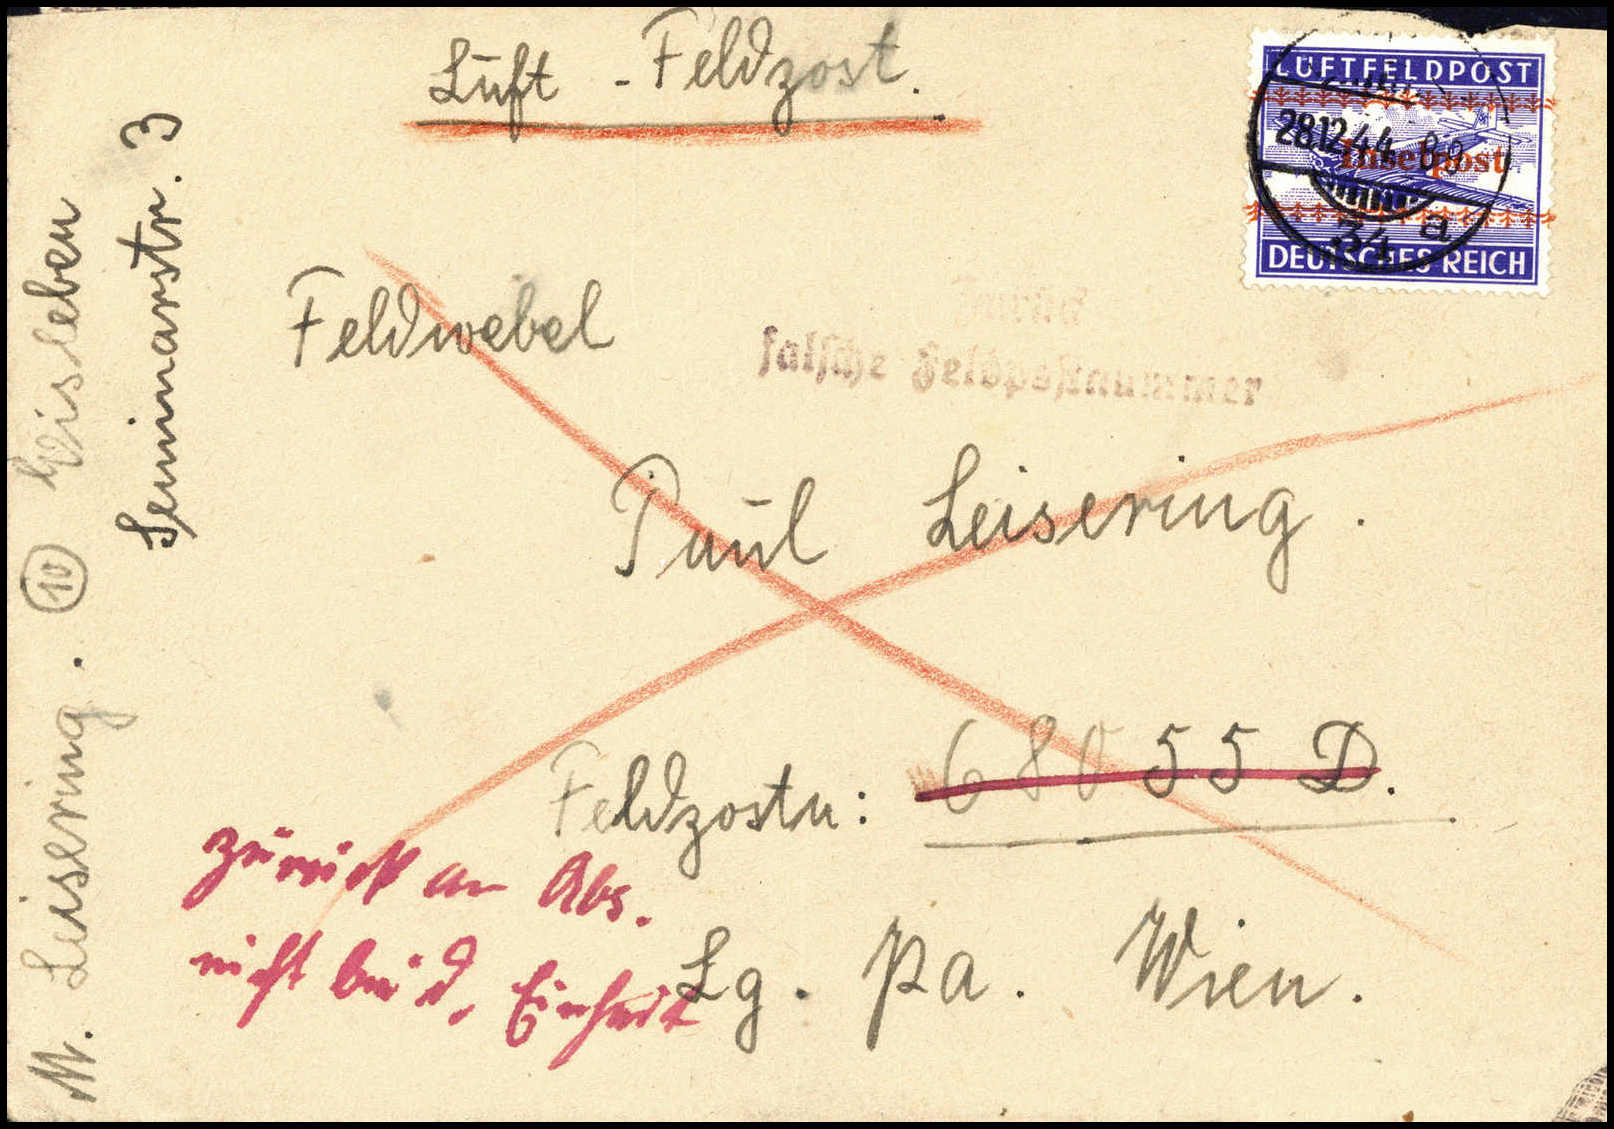 Luft - Feldpost.
LUFTFELDPOST
Inselpost
28.12.44
a
34
DEUTSCHES REICH
Zurück
falsche Feldpostnummer
Feldwebel
Paul Leisering.
Feldpostn: 68055 D.
Lg. pa. Wien.
zurück an Abs.
nicht bei d. Einheit
M. Leisering. (10) Eisleben
Seminarstr. 3